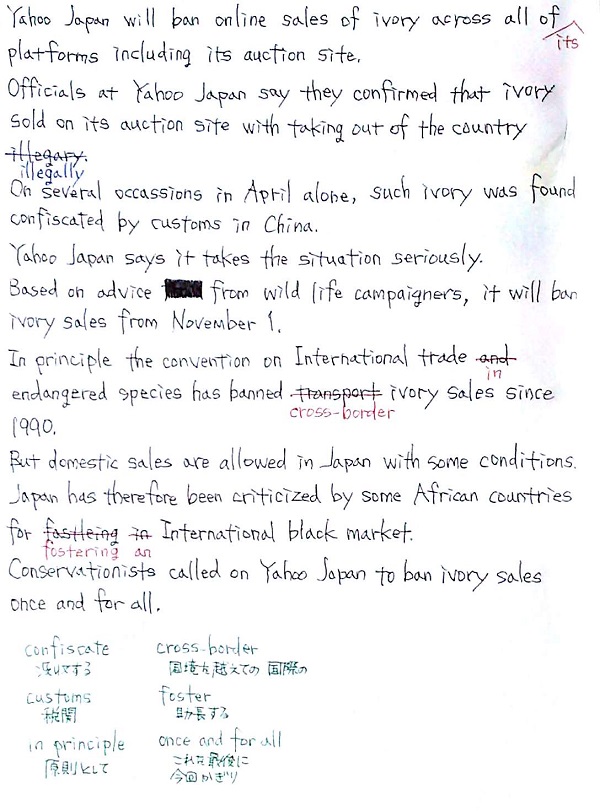 Yahoo Japan will ban online sales of ivory across all of
its
platforms including its auction site.
Officials at Yahoo Japan say they confirmed that ivory
sold on its auction site with taking out of the country
illegary.
illegally
On several occassions in April alone, such ivory was found
confiscated by customs in China.
Yahoo Japan says it takes the situation seriously.
Based on advice from wild life campaigners, it will ban
ivory sales from November 1.
In principle the convention on International trade and
in
endangered species has banned transport ivory sales since
cross-border
1990.
But domestic sales are allowed in Japan with some conditions.
Japan has therefore been criticized by some African countries
for fastleing in International black market.
fostering an
Conservationists called on Yahoo Japan to ban ivory sales
once and for all.
confiscate cross-border
没収する 国境を越えての 国際の
customs foster
税関 助長する
in principle once and for all
原則として これを最後に
今回かぎり